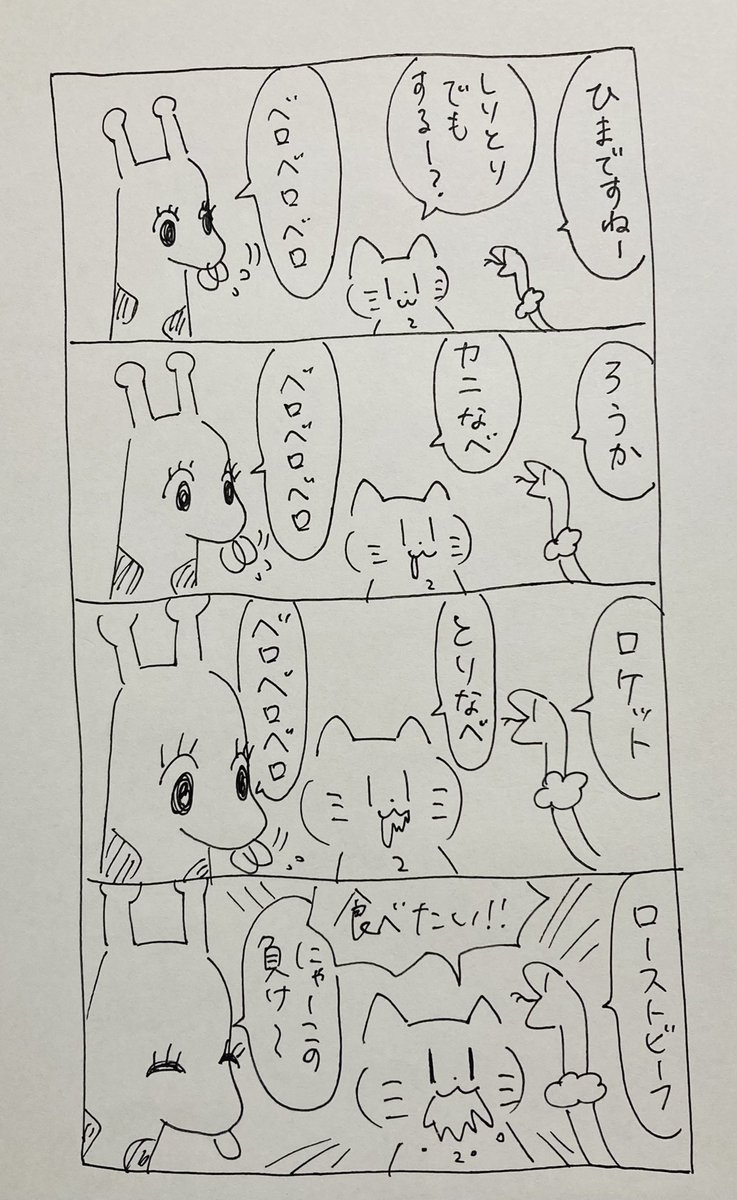 ひまですねー
しりとり
でも
するー?
ベロベロベロ
ろうか
カニなべ
ベロベロベロ
ロケット
とりなべ
ベロベロベロ
ローストビーフ
食べたい!!
にゃーこの
負け〜